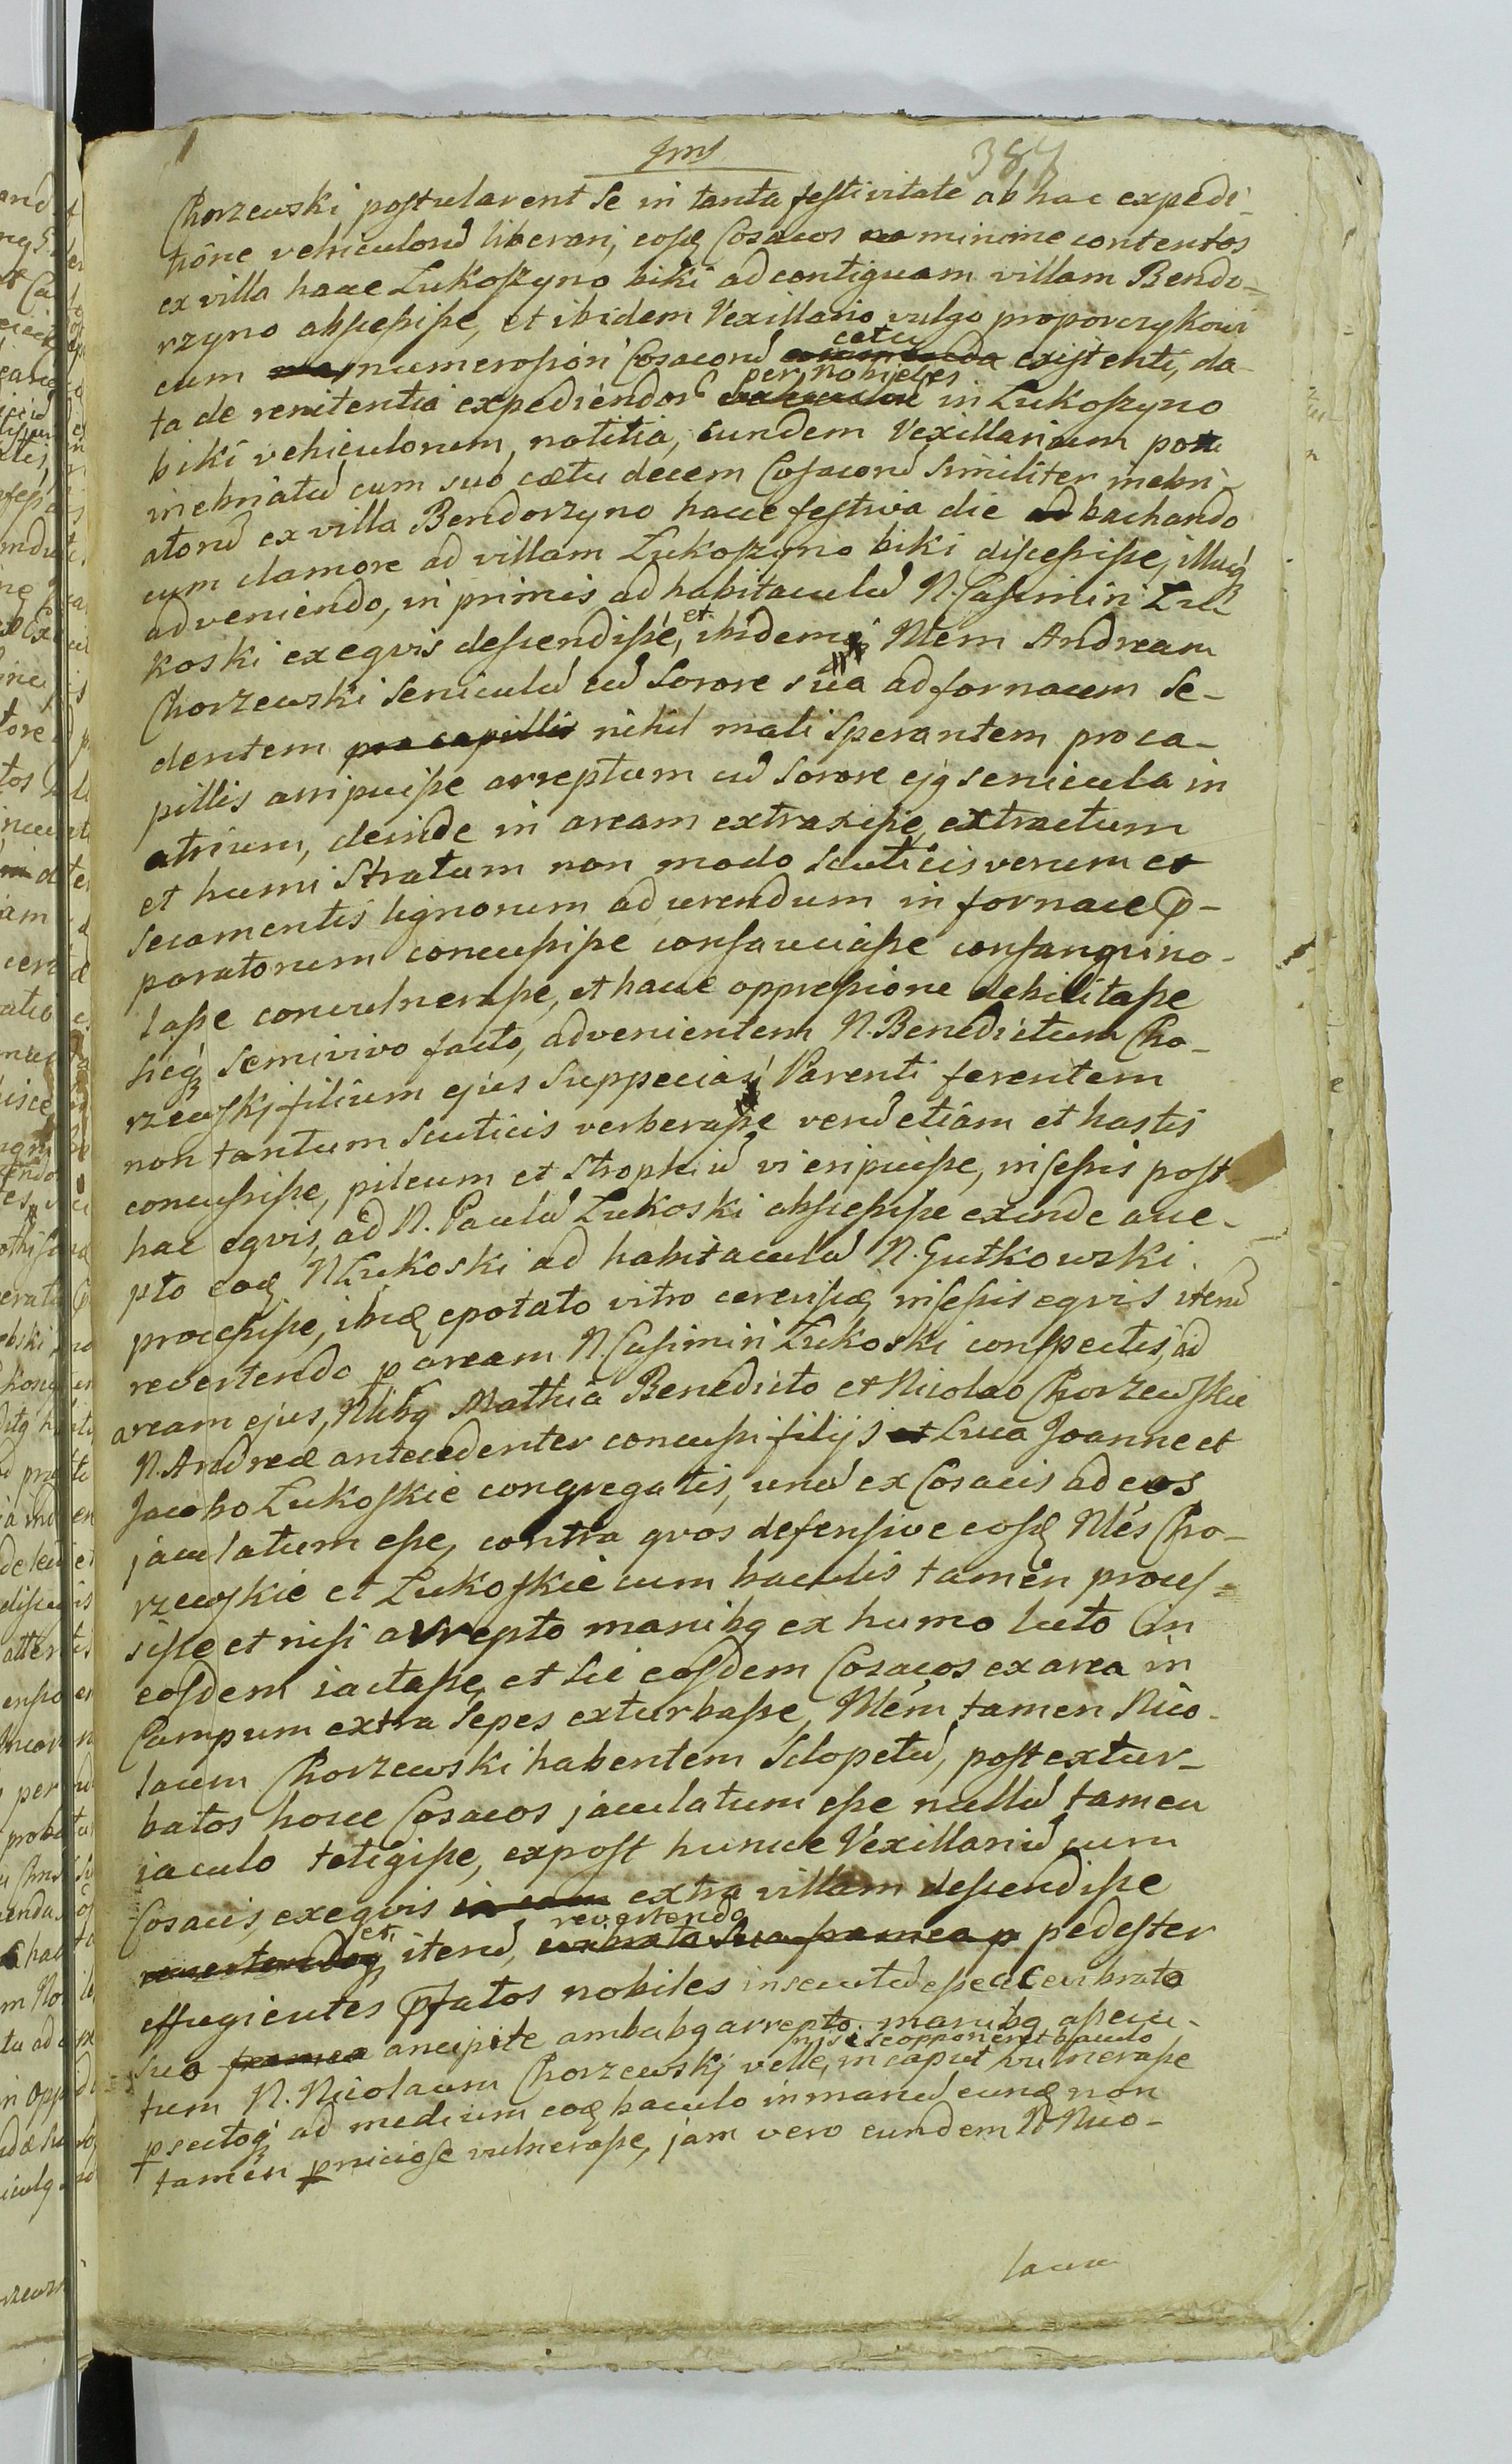 387
Chorzewski postularent se in tanta festivitate ab hac expedi-
tione vehiculorũ liberari, eosq Cosacos minime contentos
ex villa hacce Lukoszyno biki ad contiguam villam Bendo-
rzyno abscessisse, et ibidem Vexillario vulgo proporczykowi
cum numerosiori Cosacorũ cætu existenti, da-
ta de renitentia expediendor per nobiles in Lukoszyno
biki vehiculorum, notitia, eundem Vexillarium potu
inebriatũ cum suo cætu decem Cosacorũ similiter inebri-
atorũ ex villa Bendorzyno hacce festiva die bachando
cum clamore ad villam Lukoszyno biki discessisse, illucq
adveniendo, in primis ad habitaculũ N. Casimiri Lu-
koski ex eqvis descendisse, et ibidem Nlem Andream
Chorzewski seniculũ cũ sorore sua ad fornacem se-
dentem pro capillis nihil mali sperantem pro ca-
pillis arripuisse arreptum cũ sorore ejq senicula in
atrium, deinde in aream extraxisse, extractum
et humi stratum non modo scuticis verum et
secamentis lignorum ad urendum in fornace p-
paratorum concussisse consauciasse consangvino-
lasse convulnerasse, et hacce oppressione debilitasse
sicq semivivo facto, advenientem N. Benedictum Cho-
rzewskj filium ejus suppecias Parenti ferentem
non tantum scuticis verberasse verũ etiam et hastis
concussisse, pileum et strophiũ vi eripuisse, insessis post
hac eqvis, ad N. Paulũ Lukoski abscessisse exinde acce-
pto eoq N Lukoski ad habitaculũ N. Gutkowski
processisse, ibiq epotato vitro cerevisiæ, insessis eqvis iterũ
revertendo p aream N. Casimiri Lukoski conspectis, ad
aream ejus, Nlibq Mathia Benedicto et Nicolao Chorzewskie
N. Andreæ antecedenter concussi filijs et Luca Joanne et
Jacobo Lukoskie congregatis, unũ ex Cosacis ad eos
jaculatum esse, contra qvos defensive eosq Nles Cho-
rzewskie et Lukoskie cum baculis tamen proces-
sisse et nisi arrepto manibq ex humo luto in
eosdem iactasse, et sic eosdem Cosacos ex area in
Campum extra sepes exturbasse, Nlem tamen Nico-
laum Chorzewski habentem Sclopetũ, post extur-
batos hosce Cosacos jaculatum esse nullũ tamen
iaculo tetigisse, expost huncce Vexillariũ cum
Cosacis, ex eqvis extra villam descendisse
et iterũ, revertendo pedester
effugientes pfatos nobiles insecutũ esse ac evibrato
suo framea ancipite ambabq arrepto manibq assecu-
tum N. Nicolaum Chorzewskj velle, nisi se opponeret baculo in caput vulnerasse
psectoq ad medium eoq baculo in manũ eunq non
tamen pniciose vulnerasse, jam vero eundem N Nico-
laum